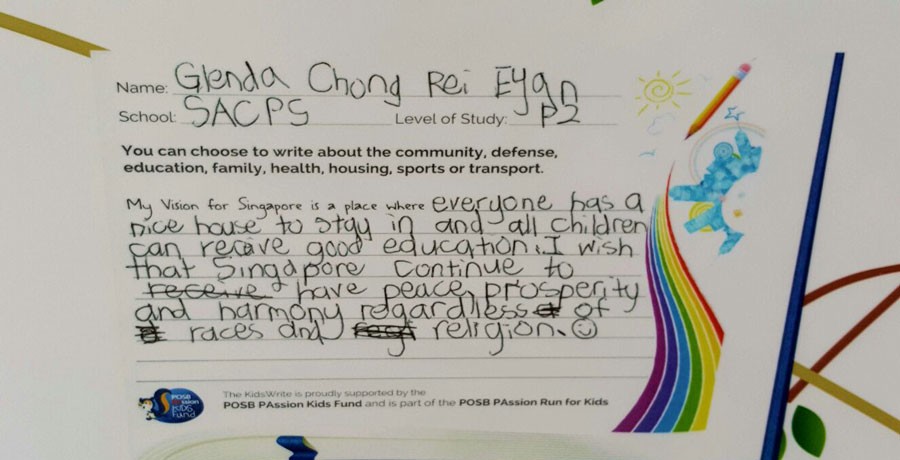 Name: Glenda Chong Rei Eyan
School: SACPS Level of Study: P2
You can choose to write about the community, defense,
education, family, health, housing, sports or transport.
My Vision for Singapore is a place where everyone has a
nice house to stay in and all children
can recive good education. I wish
that Singapore continue to
receive have peace, prosperity
and harmony regardless of
races and religion.
The KidsWrite is proudly supported by the
POSB PAssion Kids Fund and is part of the POSB PAssion Run for Kids
POSB
PAssion
Kids
Fund